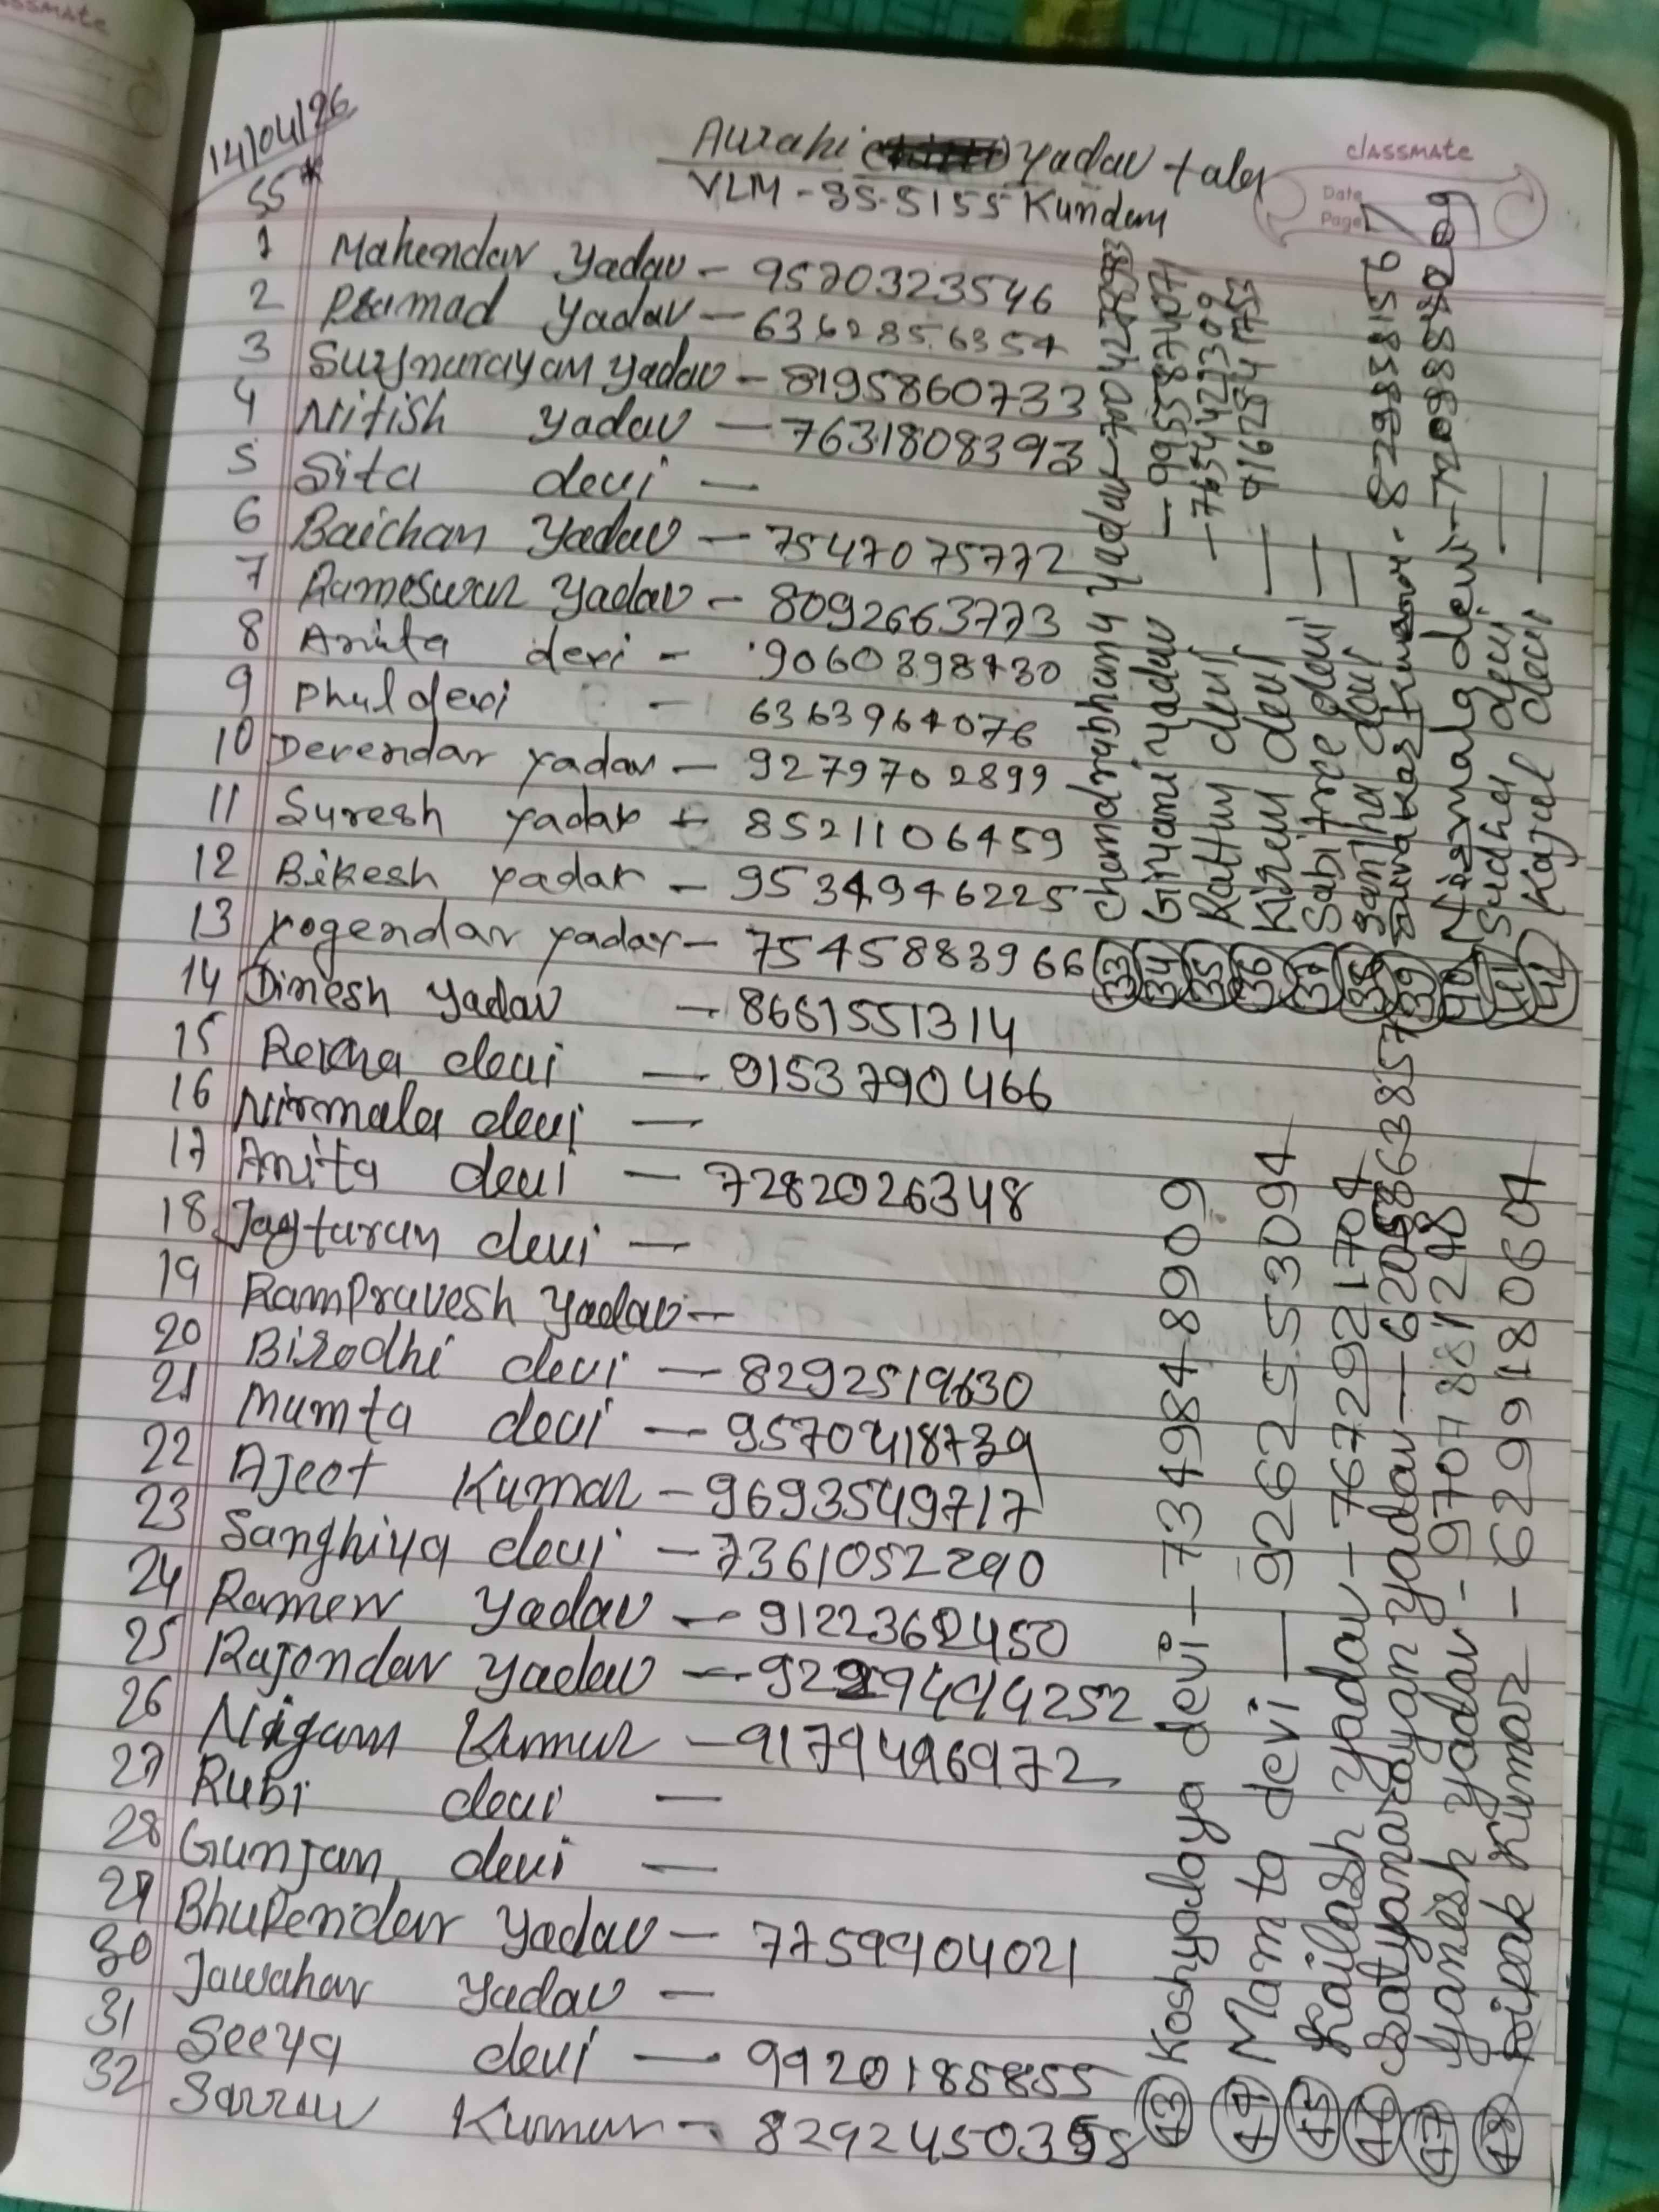 classmate
14/04/26
55*
Aurahi Yadav tola
VLM - 35-5155 Kundan
classmate
Date
Page
1 Mahendar Yadav - 9570323546
2 Pramad Yadav - 6362856354
3 Surjnarayan Yadav - 8195860733
4 Nitish Yadav - 7631808393
5 Sita devi -
6 Baichan Yadav - 7547075772
7 Rameswar Yadav - 8092663773
8 Anita devi - 9060398430
9 Phul devi - 6363964076
10 Devendar Yadav - 9279702899
11 Suresh Yadav - 8521106459
12 Bikesh Yadav - 9534946225
13 Yogendar Yadav - 7545883966
14 Dinesh Yadav - 8651551314
15 Rekha devi - 9153790466
16 Nirmala devi -
17 Anita devi - 7282026348
18 Jagtaran devi -
19 Rampravesh Yadav -
20 Birodhi devi - 8292519630
21 Mumta devi - 9570418739
22 Ajeet Kumar - 9693549717
23 Sanghiya devi - 7361052290
24 Ramen Yadav - 9122360450
25 Rajendar Yadav -
26 Nigam Kumar - 9179496972
27 Rubi devi -
28 Gunjan devi -
29 Bhupendar Yadav - 7759904021
30 Jawahar Yadav -
31 Seeya devi - 9920185855
32 Kumar - 8292450358
33 Chandrabhanu Yadav - 7004278983
34 Giryani Yadav - 9955874071
35 Rattun devi - 7654423309
36 Kiren devi - 9162841753
37 Sabitree devi -
38 Santha devi -
39 Kumar - 8298588156
40 Nirmala devi -
41 Sudha devi -
42 Kajul devi -
43 Koshyalaya devi - 7349848909
44 Mamta devi - 9262553094
45 Kailash Yadav - 7672921704
46 Satyanarayan Yadav -
47 Ganesh Yadav - 9707881248
48 Dipak Kumar - 6299180604